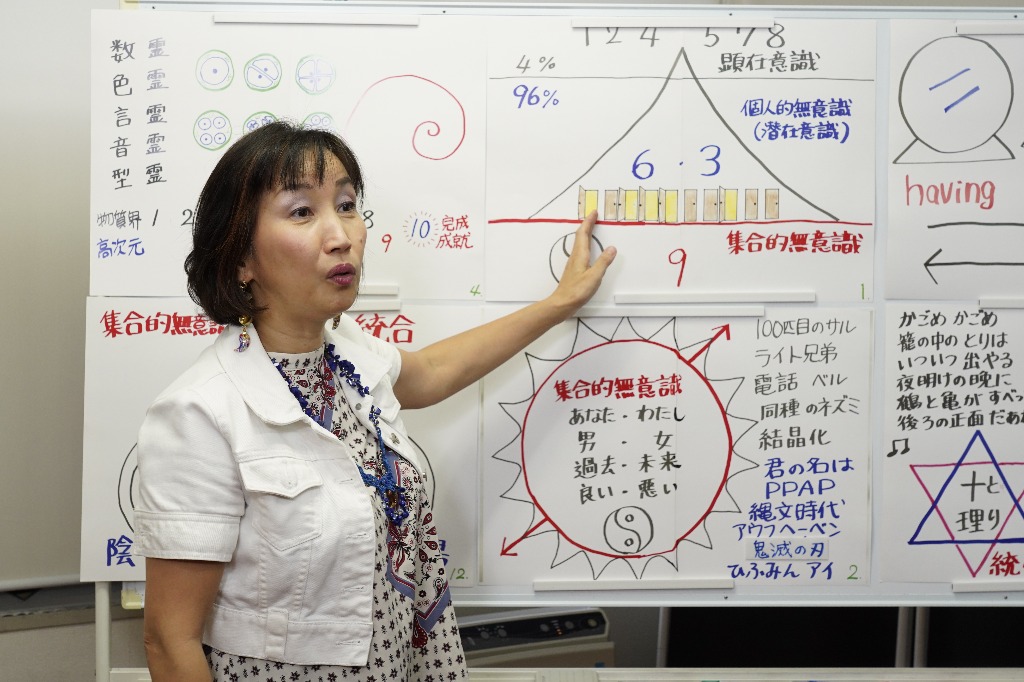 数霊
色霊
言霊
音霊
型霊
物質界 1 2 8
高次元
9
10
完成
成就
4.
1 2 4 5 7 8
4%
96%
顕在意識
個人的無意識
(潜在意識)
6・3
集合的無意識
9
1.
having
集合的無意識
統合
陰
12.
集合的無意識
あなた・わたし
男・女
過去・未来
良い・悪い
100匹目のサル
ライト兄弟
電話 ベル
同種のネズミ
結晶化
君の名は
PPAP
縄文時代
アウフヘーベン
鬼滅の刃
ひふみん アイ
2.
かごめ かごめ
籠の中の とりは
いついつ 出やる
夜明けの晩に
鶴と亀が すべっ
後ろの正面 だあ
十と
理り
統